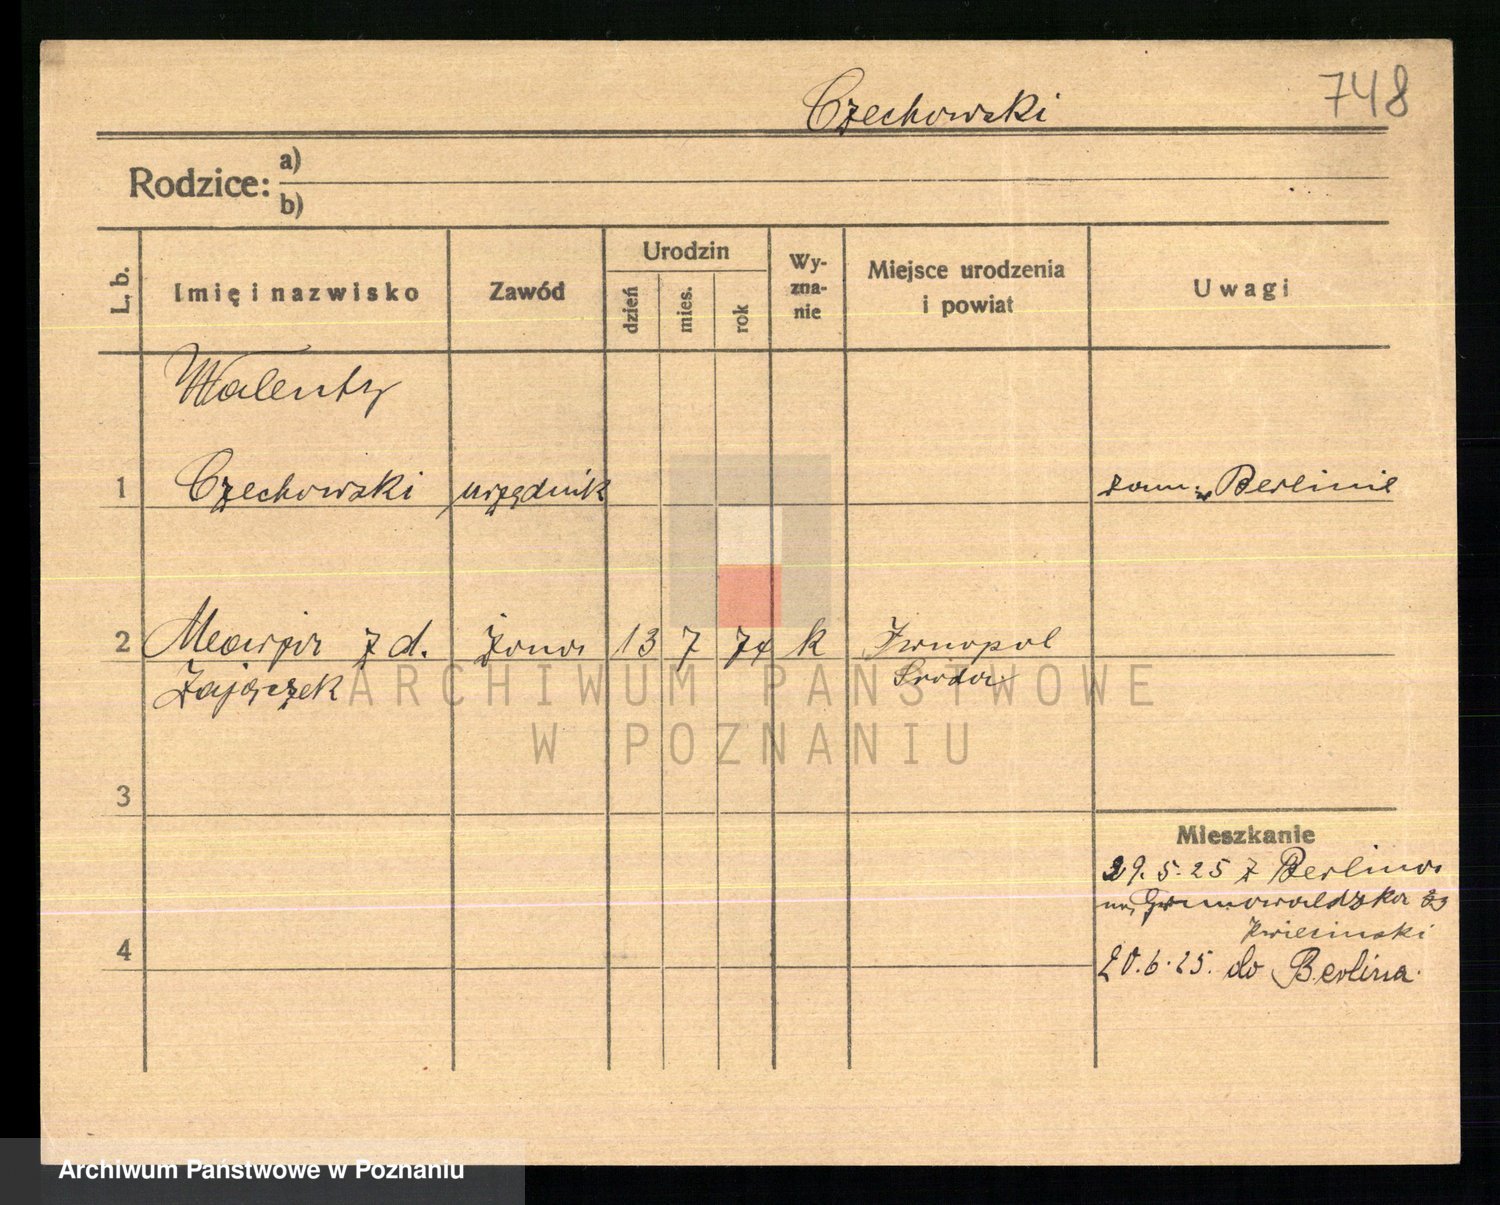 Czechowski
748
Rodzice: a)
b)
L. b.
Imię i nazwisko
Zawód
Urodzin
dzień
mies.
rok
Wy-
zna-
nie
Miejsce urodzenia
i powiat
Uwagi
Walenty
1 Czechowski urzędnik zam. w Berlinie
2 Marja z d. żona 13 7 74 k
Zajączek Środa
ARCHIWUM PAŃSTWOWE
W POZNANIU
3
Mieszkanie
29.5.25 z Berlina
Grunwaldzka
Kwieciński
4
20.6.25. do Berlina.
Archiwum Państwowe w Poznaniu